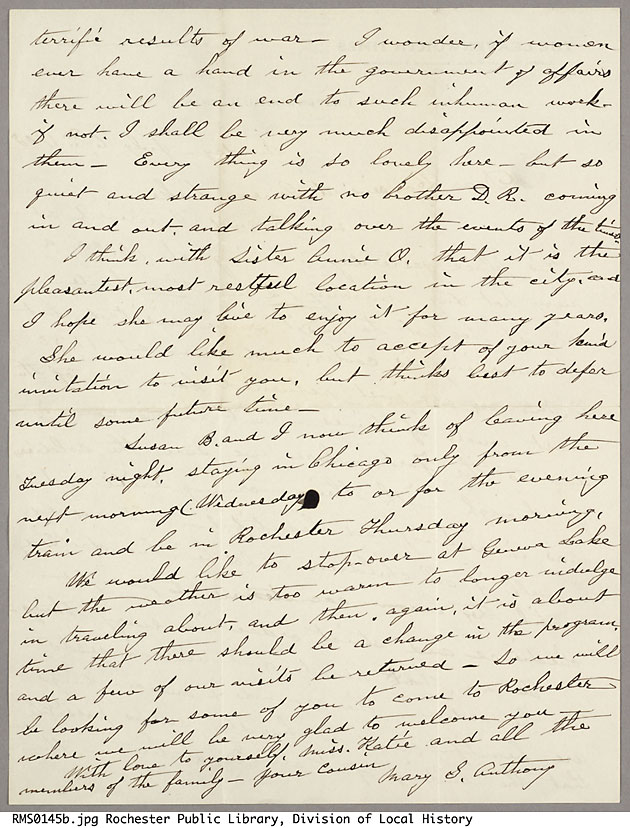 terrific results of war — I wonder, if women
ever have a hand in the government of affairs
there will be an end to such inhuman work —
if not, I shall be very much disappointed in
them — Every thing is so lovely here — but so
quiet and strange with no brother D.R. coming
in and out, and talking over the events of the times.
I think, with Sister Annie O. that it is the
pleasantest, most restfull location in the city, and
I hope she may live to enjoy it for many years.
She would like much to accept of your kind
invitation to visit you, but thinks best to defer
until some future time —
Susan B. and I now think of leaving here
Tuesday night, staying in Chicago only from the
next morning (Widnesday) to or for the evening
train and be in Rochester Thursday morning.
We would like to stop-over at Geneva Lake
but the weather is too warm to longer indulge
in traveling about, and then, again, it is about
time that there should be a change in the program,
and a few of our visits be returned — So we will
be looking for some of you to come to Rochester
where we will be very glad to welcome you —
With love to yourself, Miss. Katie and all the
members of the family — your cousin
Mary S. Anthony
RMS0145b.jpg Rochester Public Library, Division of Local History